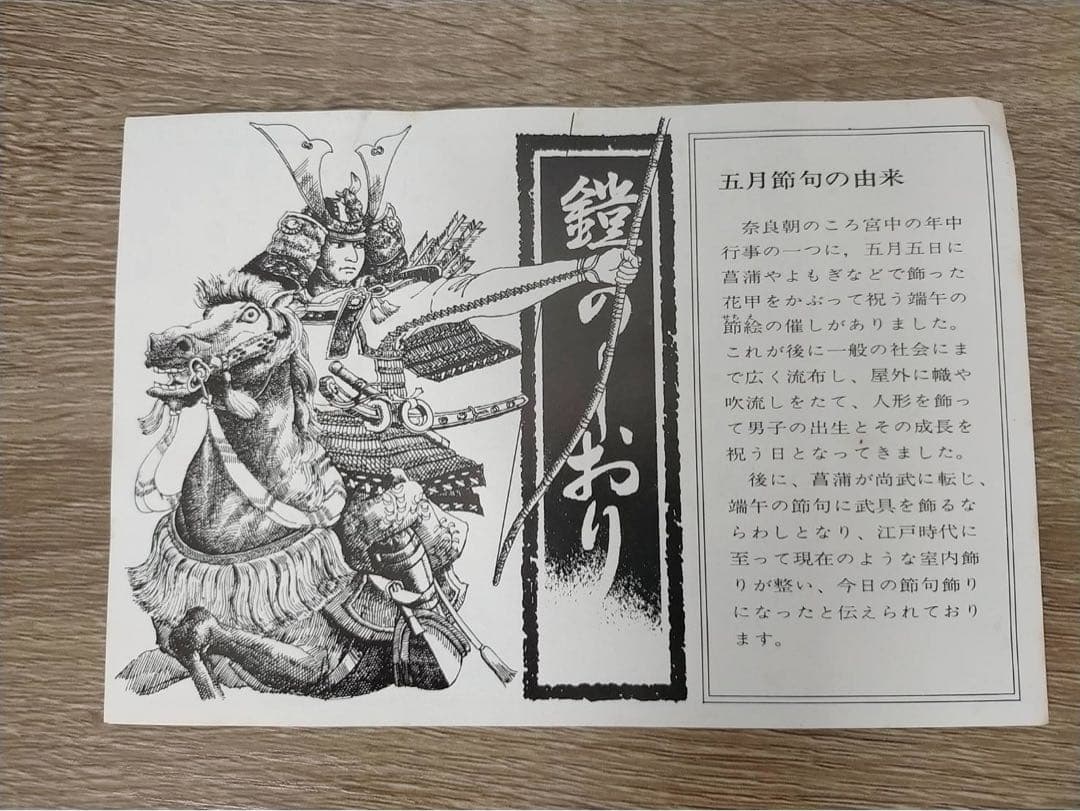 鎧のしおり
五月節句の由来
奈良朝のころ宮中の年中
行事の一つに，五月五日に
菖蒲やよもぎなどで飾った
花甲をかぶって祝う端午の
せちえ
節絵の催しがありました。
これが後に一般の社会にま
で広く流布し、屋外に幟や
吹流しをたて、人形を飾っ
て男子の出生とその成長を
祝う日となってきました。
後に、菖蒲が尚武に転じ、
端午の節句に武具を飾るな
らわしとなり、江戸時代に
至って現在のような室内飾
りが整い、今日の節句飾り
になったと伝えられており
ます。